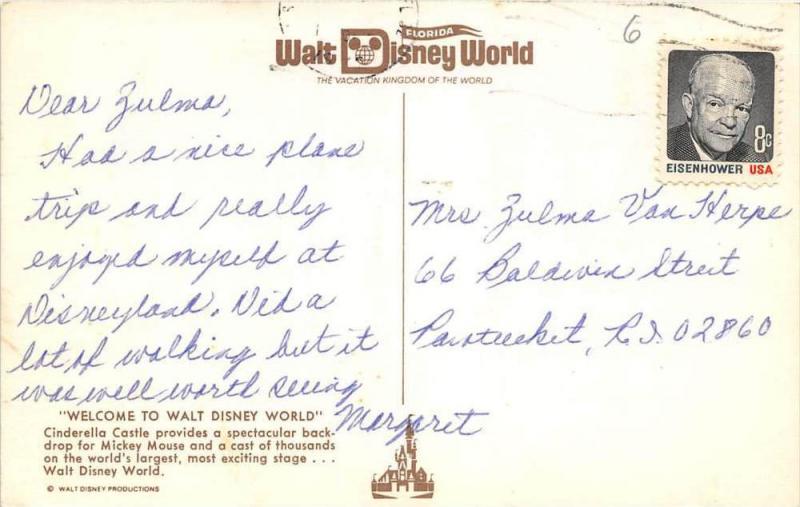 FLORIDA
Walt Disney World
THE VACATION KINGDOM OF THE WORLD
6
8c
EISENHOWER USA
Dear Zulma,
Had a nice plane
trip and really
enjoyed myself at
Disneyland. Did a
lot of walking but it
was well worth seeing
Margaret
Mrs Zulma Van Herpe
66 Baldwin Street
Pawtucket, R.I. 02860
"WELCOME TO WALT DISNEY WORLD"
Cinderella Castle provides a spectacular back-
drop for Mickey Mouse and a cast of thousands
on the world's largest, most exciting stage . . .
Walt Disney World.
© WALT DISNEY PRODUCTIONS